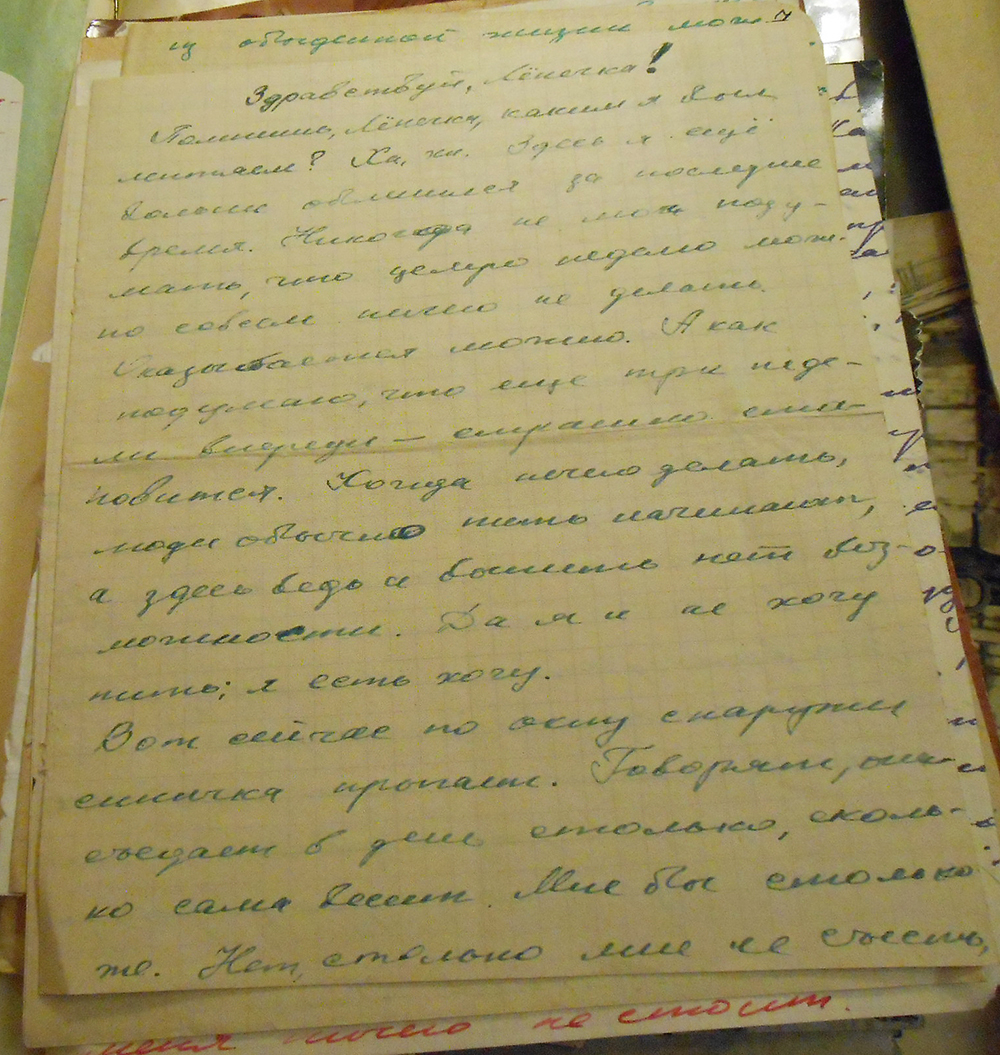 из обыденной жизни мож
Здравствуй, Лёнечка!
Помнишь, Лёнечка, каким я был
лентяем? Ха, хи. Здесь я ещё
больше обленился за последнее
время. Никогда не мог поду-
мать, что целую неделю мож-
но совсем ничего не делать.
Оказывается можно. А как
подумаю, что еще три неде-
ли впереди — страшно ста-
новится. Когда нечего делать,
люди обычно пить начинают,
а здесь ведь и выпить нет воз-
можности. Да я и не хочу
пить; я есть хочу.
Вот сейчас по окну снаружи
синичка прыгает. Говорят, она
съедает в день столько, сколь-
ко сама весит. Мне бы столько
же. Нет, столько мне не съесть,
меня ничего не стоит.